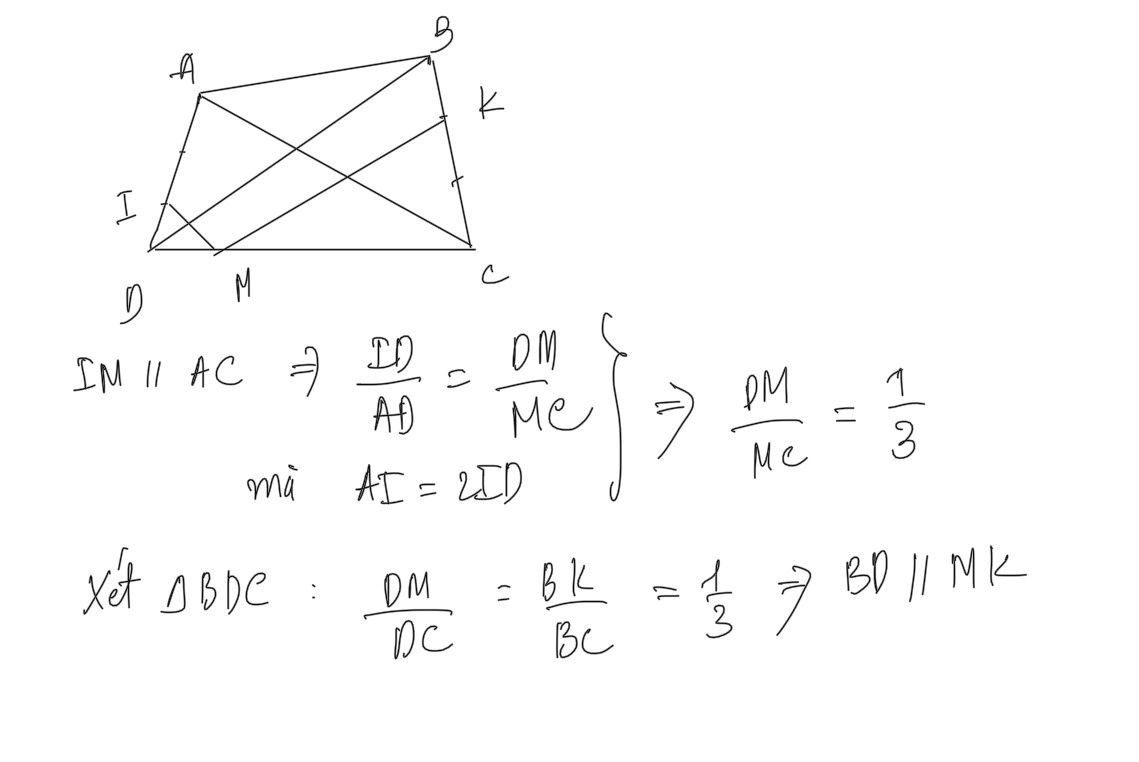 A
B
K
I
D
M
C
IM // AC ⇒ ID/AD = DM/MC
mà AI = 2ID
⇒ DM/MC = 1/3
Xét ΔBDC : DM/DC = BK/BC = 1/3 ⇒ BD // MK